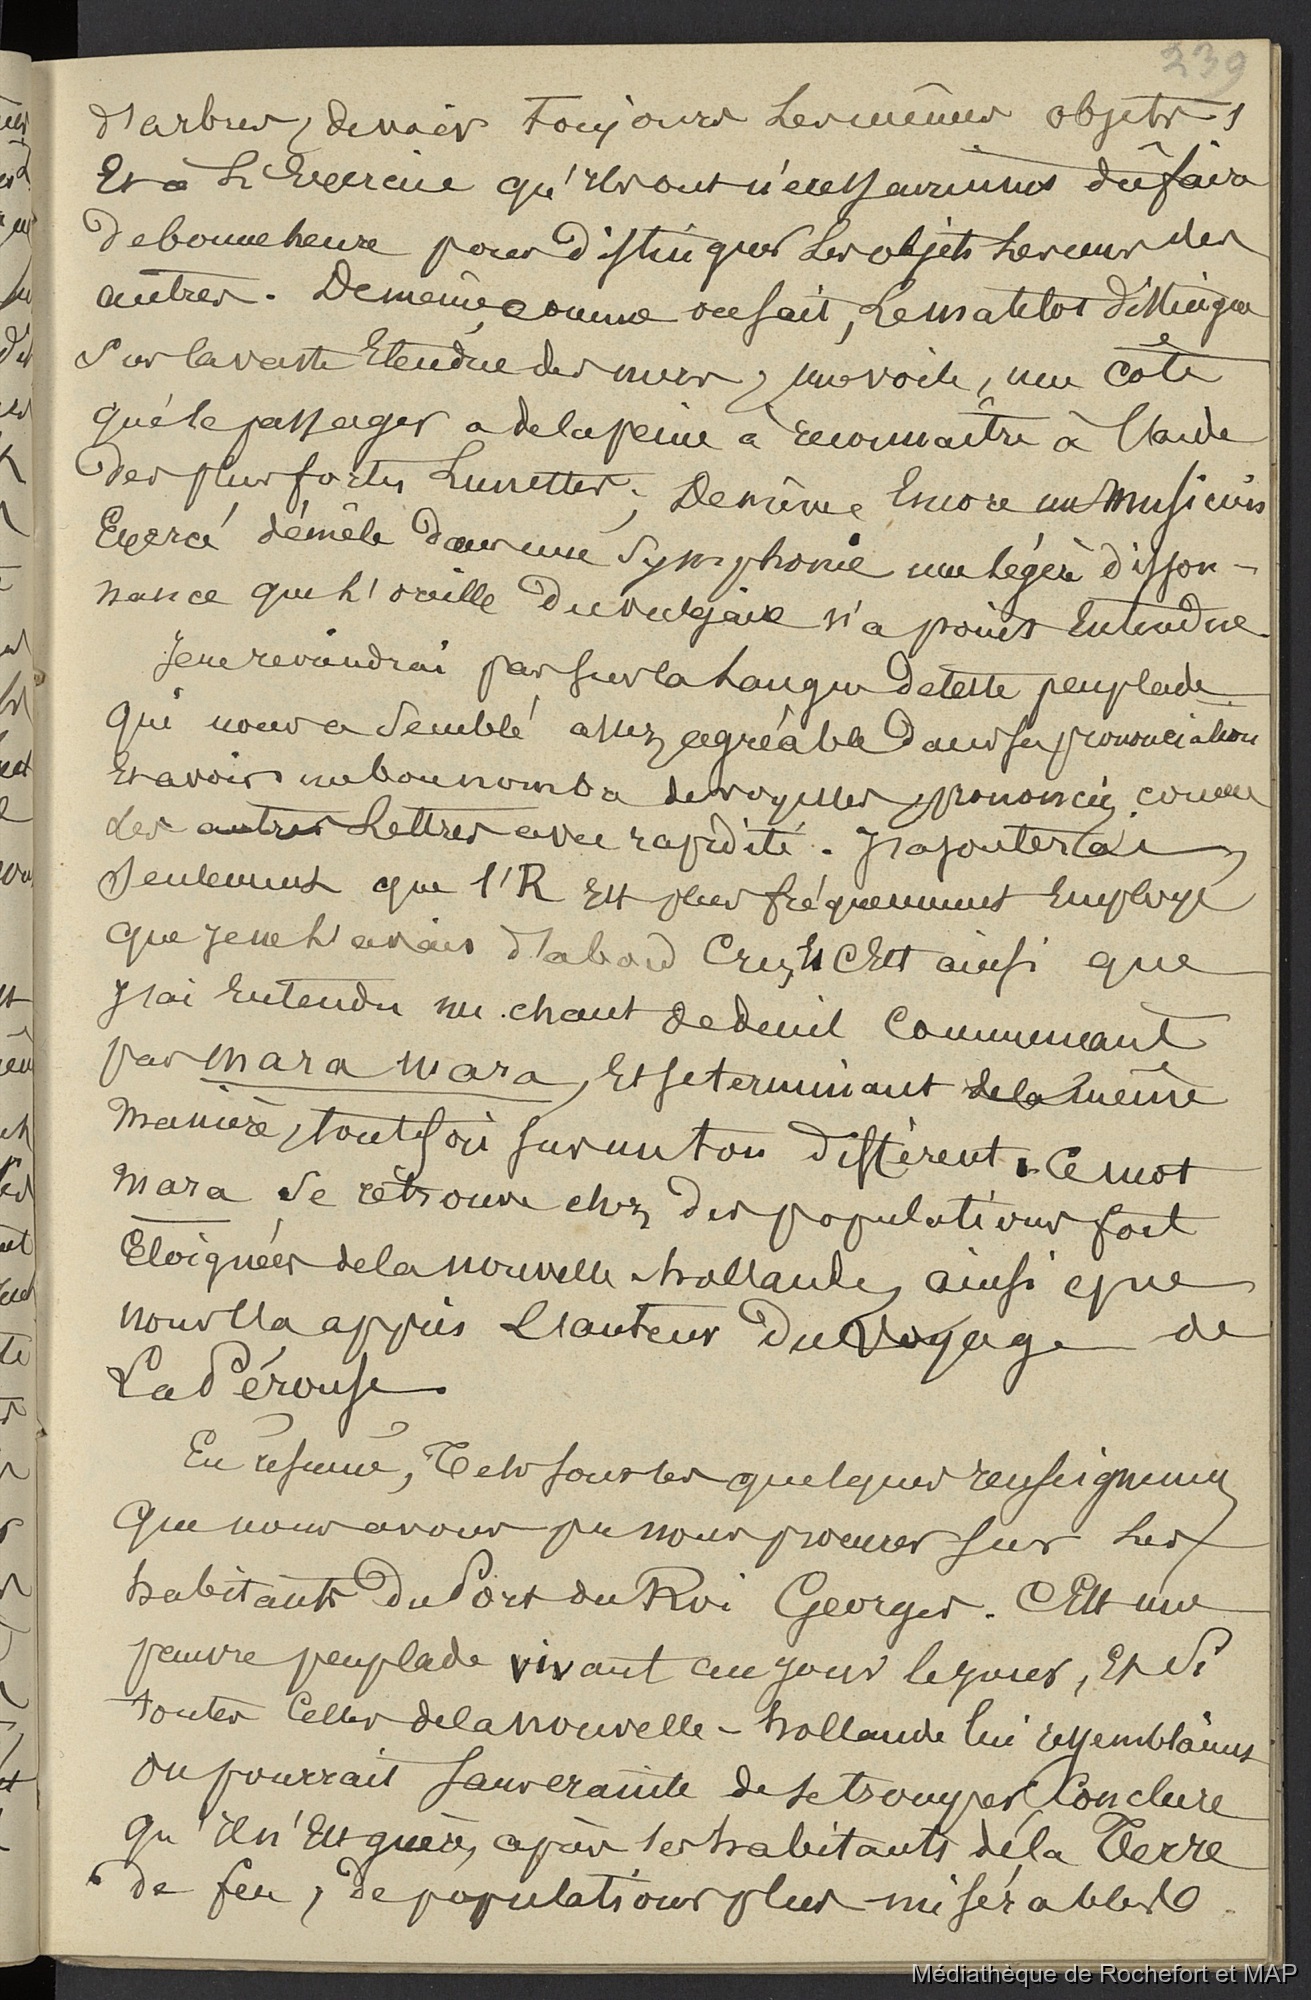 239
d'arbres, de voir toujours les mêmes objets,
Et à L'Exercice qu'ils ont nécessairement dû faire
de bonne heure pour distinguer Les objets Les uns des
autres. De même comme on sait, Le matelot distingue
sur la vaste Etendue des mers, une voile, une côte
que le passager a de la peine à reconnaître à l'aide
des plus fortes Lunettes; De même Encore un Musicien
Exercé démêle dans une Symphonie une légère disson-
nance que L'oreille du vulgaire n'a point Entendue.
Je ne reviendrai pas sur la Langue de cette peuplade
qui nous a semblé assez agréable dans sa prononciation
Et avoir un bon nombre de voyelles prononcées comme
les autres Lettres avec rapidité. J'ajouterai
seulement que l'R Est plus fréquemment Employé
que je ne L'avais d'abord Cru, Et C'Est ainsi que
J'ai Entendu un chant de deuil Commencant
par mara mara, Et se terminant de la même
Manière, toutefois sur un ton différent. Ce mot
mara se retrouve chez des populations fort
Eloignées de la nouvelle hollande, ainsi que
nous l'a appris L'auteur du Voyage de
La Pérouse.
En résumé, Tels sont les quelques renseignemens
Que nous avons pu nous procurer sur Les
habitants du Port du Roi Georges. C'Est une
pauvre peuplade vivant au jour le jour, Et si
toutes Celles de la nouvelle-hollande lui ressemblaient
on pourrait sans crainte de se tromper Conclure
qu'il n'Est guère, après les habitants de la Terre
de feu, de populations plus misérables.
Médiathèque de Rochefort et MAP